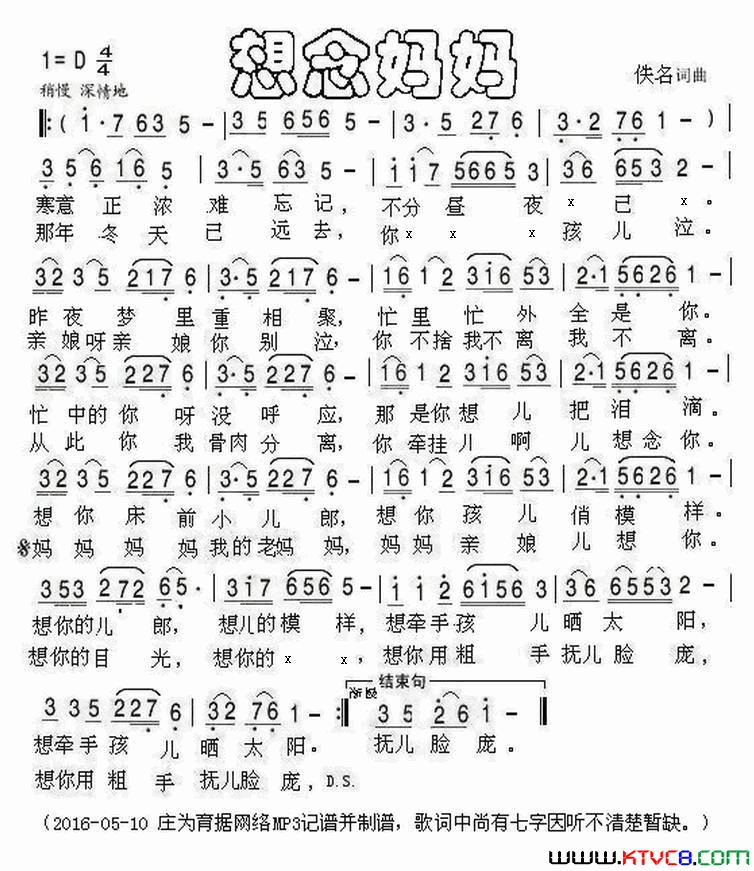 想念妈妈
1=D 4/4
稍慢 深情地
佚名词曲
‖:( i·7 63 5 - | 35 656 5 - | 3·5 27 6 - | 3·2 76 1 - ) |
3 5 6 1 6 5 | 3·5 63 5 - | i i i 7 5665 3 | 36 653 2 - |
寒意正浓难忘记，不分昼夜x已x。
那年冬天已远去，你x x x孩儿泣。
32 35 217 6 | 3·5 217 6 - | 16 12 3i6 53 | 2·1 5626 1 - |
昨夜梦里重相聚，忙里忙外全是你。
亲娘呀亲娘你别泣，你不捨我不离我不离。
32 35 227 6 | 3·5 227 6 - | 16 12 3i6 53 | 2·1 5626 1 - |
忙中的你呀没呼应，那是你想儿把泪滴。
从此你我骨肉分离，你牵挂儿啊儿想念你。
32 35 227 6 | 3·5 227 6 - | 16 12 3i6 53 | 2·1 5626 1 - |
想你床前小儿郎，想你孩儿俏模样。
妈妈妈妈我的老妈妈，妈妈亲娘儿想你。
353 272 65· | 3i7 656 5 - | i i i 2 6i56 3 | 36 6553 2 - |
想你的儿郎，想儿的模样，想牵手孩儿晒太阳，
想你的目光，想你的x x，想你用粗手抚儿脸庞，
结束句
渐慢
3 35 227 6 | 32 76 1 - :‖ 35 26 i - ‖
想牵手孩儿晒太阳。抚儿脸庞。
想你用粗手抚儿脸庞，D.S.
（2016-05-10 庄为育据网络MP3记谱并制谱，歌词中尚有七字因听不清楚暂缺。）
www.KTVC8.com